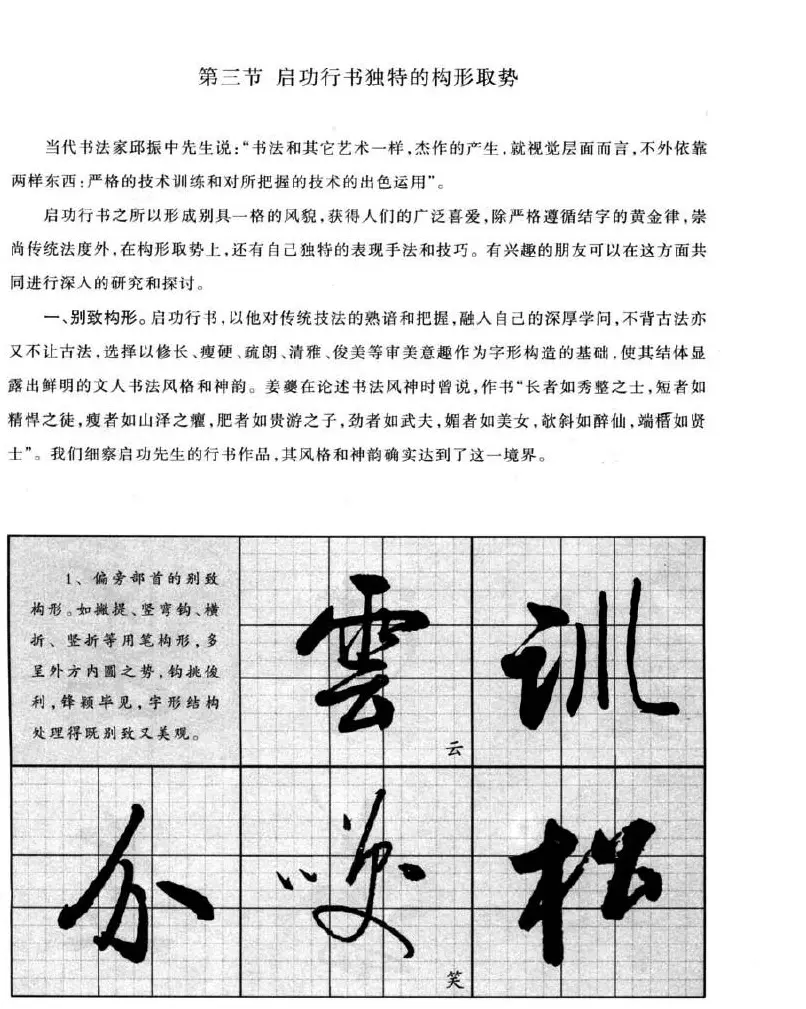 第三节 启功行书独特的构形取势
当代书法家邱振中先生说:“书法和其它艺术一样,杰作的产生,就视觉层面而言,不外依靠
两样东西:严格的技术训练和对所把握的技术的出色运用”。
启功行书之所以形成别具一格的风貌,获得人们的广泛喜爱,除严格遵循结字的黄金律,崇
尚传统法度外,在构形取势上,还有自己独特的表现手法和技巧。有兴趣的朋友可以在这方面共
同进行深入的研究和探讨。
一、别致构形。启功行书,以他对传统技法的熟谙和把握,融入自己的深厚学问,不背古法亦
又不让古法,选择以修长、瘦硬、疏朗、清雅、俊美等审美意趣作为字形构造的基础,使其结体显
露出鲜明的文人书法风格和神韵。姜夔在论述书法风神时曾说,作书“长者如秀整之士,短者如
精悍之徒,瘦者如山泽之癯,肥者如贵游之子,劲者如武夫,媚者如美女,欹斜如醉仙,端楷如贤
士”。我们细察启功先生的行书作品,其风格和神韵确实达到了这一境界。
1、偏旁部首的别致
构形。如撇提、竖弯钩、横
折、竖折等用笔构形,多
呈外方内圆之势,钩挑俊
利,锋颖毕见,字形结构
处理得既别致又美观。
雲
云
訓
分
笑
松